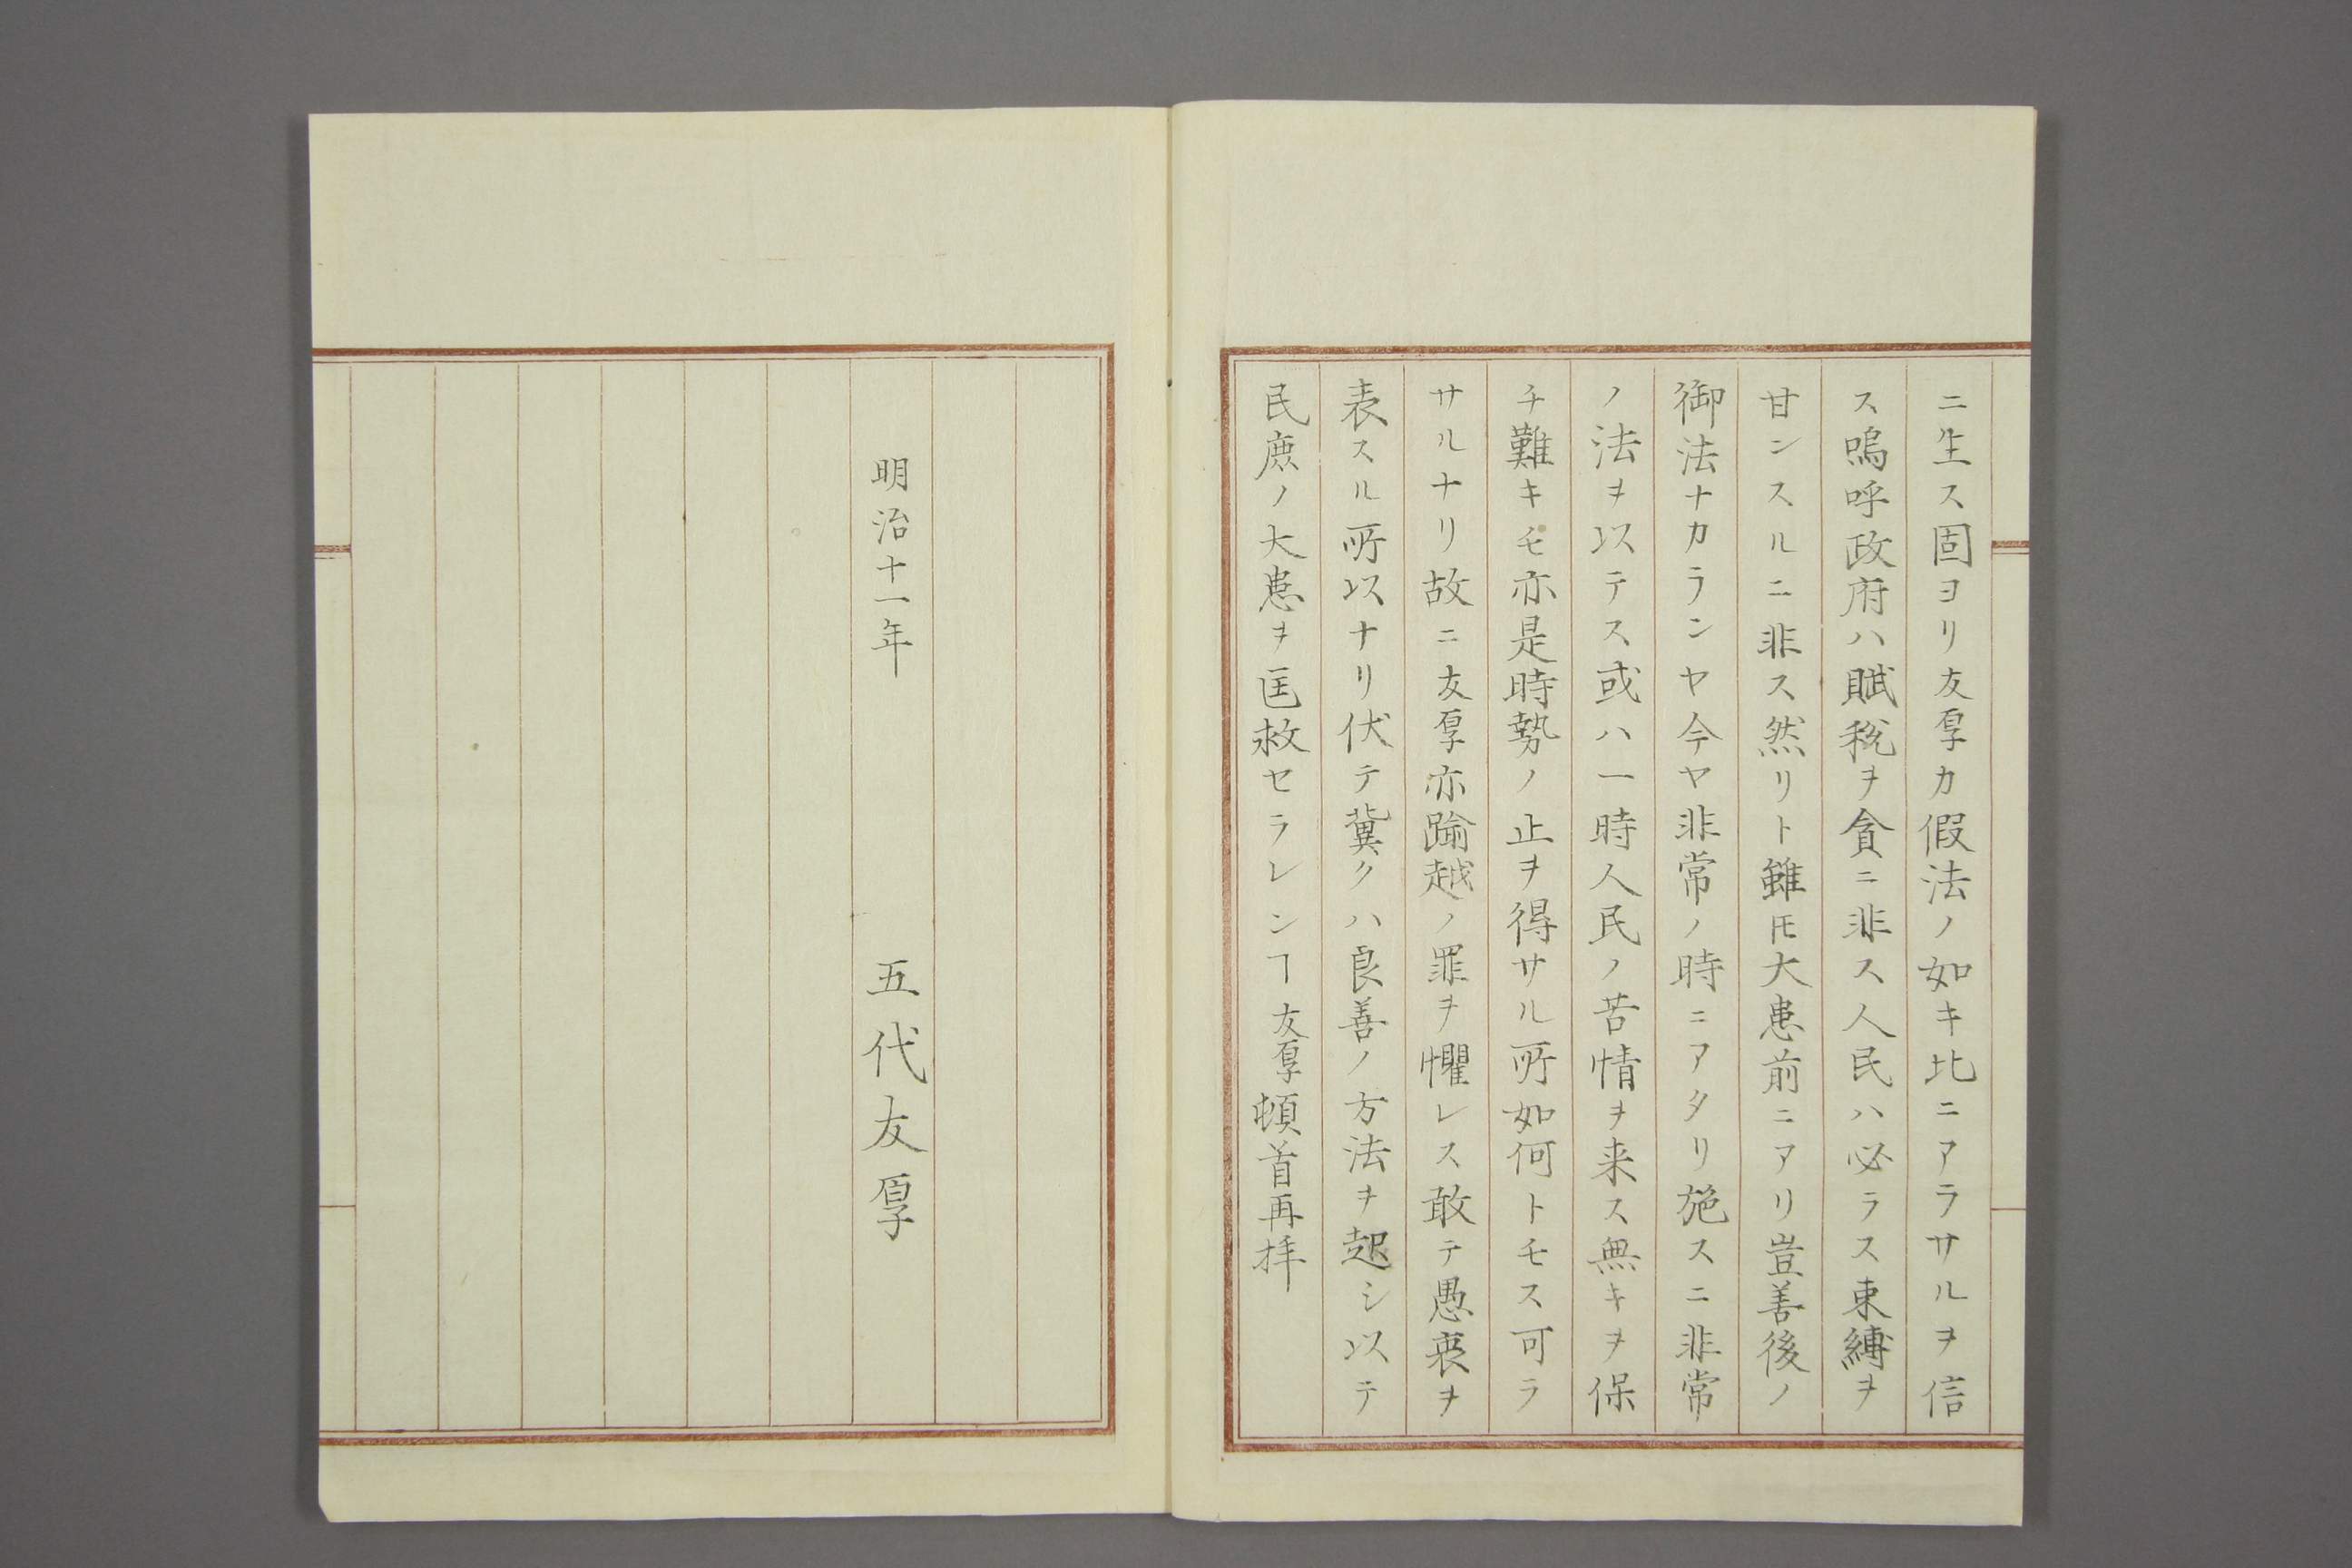 ニ生ス固ヨリ友厚カ假法ノ如キ比ニアラサルヲ信
ス嗚呼政府ハ賦税ヲ貪ニ非ス人民ハ必ラス束縛ヲ
甘ンスルニ非ス然リト雖𪜈大患前ニアリ豈善後ノ
御法ナカランヤ今ヤ非常ノ時ニアタリ施スニ非常
ノ法ヲ以テス或ハ一時人民ノ苦情ヲ来ス無キヲ保
チ難キモ亦是時勢ノ止ヲ得サル所如何トモス可ラ
サルナリ故ニ友厚亦踰越ノ罪ヲ懼レス敢テ愚衷ヲ
表スル所以ナリ伏テ冀クハ良善ノ方法ヲ起シ以テ
民庶ノ大患ヲ匡救セラレンヿ友厚頓首再拝
明治十一年 五代友厚